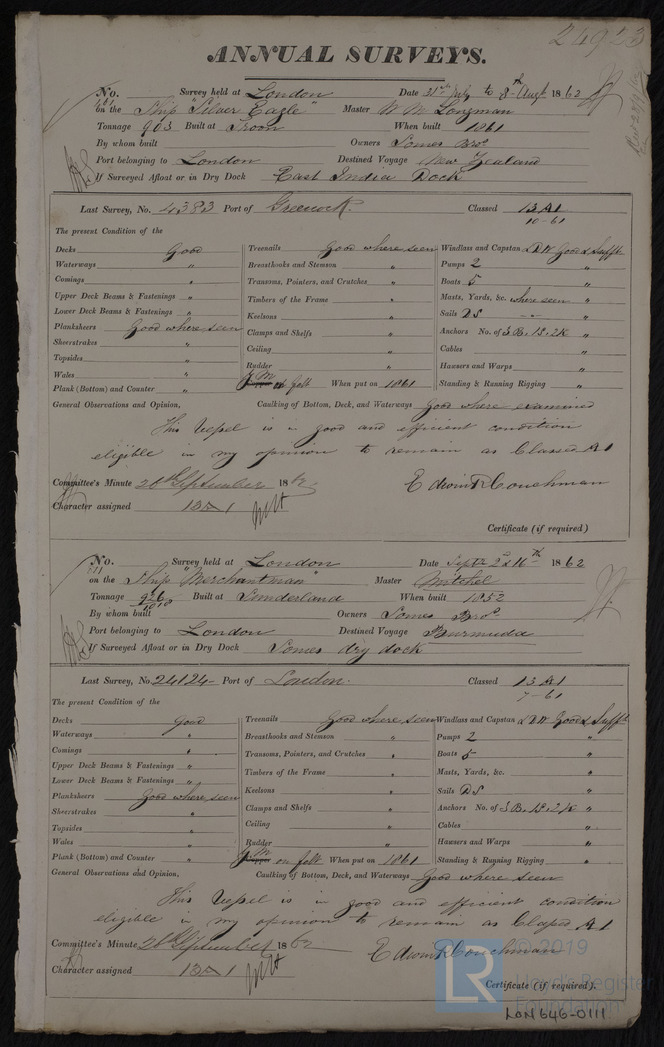 24923
ANNUAL SURVEYS.
No. Survey held at London Date 31st July to 8th Augt 1862
on the Ship "Silver Eagle" Master W M Longman
Tonnage 903 Built at Troon When built 1861
By whom built Owners Somes Bros.
Port belonging to London Destined Voyage New Zealand
If Surveyed Afloat or in Dry Dock East India Dock
Last Survey, No. 4383 Port of Greenock. Classed 13 A1
10-61
The present Condition of the
Decks Good Treenails Good where seen Windlass and Capstan Good & Sufft
Waterways " Breasthooks and Stemson " Pumps 2 "
Comings " Transoms, Pointers, and Crutches " Boats 5 "
Upper Deck Beams & Fastenings " Timbers of the Frame " Masts, Yards, &c. where seen "
Lower Deck Beams & Fastenings " Keelsons " Sails 2S
Planksheers Good where seen Clamps and Shelfs " Anchors No. of 3B. 1S. 2K "
Sheerstrakes " Ceiling " Cables "
Topsides " Rudder " Hawsers and Warps "
Wales " Y.M. on felt When put on 1861 Standing & Running Rigging "
Plank (Bottom) and Counter "
General Observations and Opinion, Caulking of Bottom, Deck, and Waterways Good where examined
This Vessel is in good and efficient condition
eligible in my opinion to remain as Classed A1
Committee's Minute 26th September 1862 Edwin R Couchman
Character assigned 13 A 1
Certificate (if required)
No. Survey held at London Date Septr 2d & 16th 1862
on the Ship "Merchantman" Master Mitchel
Tonnage 926/1018 Built at Sunderland When built 1852
By whom built Owners Somes Bros.
Port belonging to London Destined Voyage Burmuda
If Surveyed Afloat or in Dry Dock Somes dry dock
Last Survey, No. 24124 Port of London. Classed 13 A1
7-61
The present Condition of the
Decks Good Treenails Good where seen Windlass and Capstan Good & Sufft
Waterways " Breasthooks and Stemson " Pumps 2 "
Comings " Transoms, Pointers, and Crutches " Boats 5 "
Upper Deck Beams & Fastenings " Timbers of the Frame " Masts, Yards, &c. "
Lower Deck Beams & Fastenings " Keelsons " Sails DS "
Planksheers Good where seen Clamps and Shelfs " Anchors No. of 3B. 1S. 2K "
Sheerstrakes " Ceiling " Cables "
Topsides " Rudder " Hawsers and Warps "
Wales " Y.M. on felt When put on 1861 Standing & Running Rigging "
Plank (Bottom) and Counter "
General Observations and Opinion, Caulking of Bottom, Deck, and Waterways Good where seen
This Vessel is in good and efficient condition
eligible in my opinion to remain as Classed A1
Committee's Minute 26th September 1862 Edwin R Couchman
Character assigned 13 A 1
Certificate (if required).
LR © 2019
Lloyd's Register
Foundation
LON646-0111